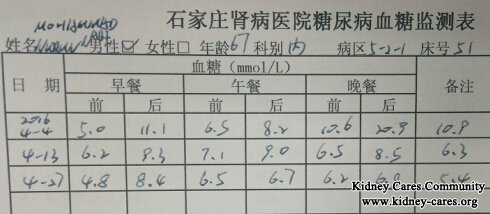 石家庄肾病医院糖尿病血糖监测表
姓名 男性☑ 女性□ 年龄67 科别内 病区5-2-1 床号51
日期 血糖（mmol/L） 备注
早餐 午餐 晚餐
前 后 前 后 前 后
2016
4-4 5.0 11.1 6.5 8.2 10.6 20.9 10.9
4-13 6.2 9.3 7.1 9.0 6.5 8.5 6.3
4-27 4.8 8.4 6.5 6.7 6.2 5.4
Kidney Cares Community
www.kidney-cares.org